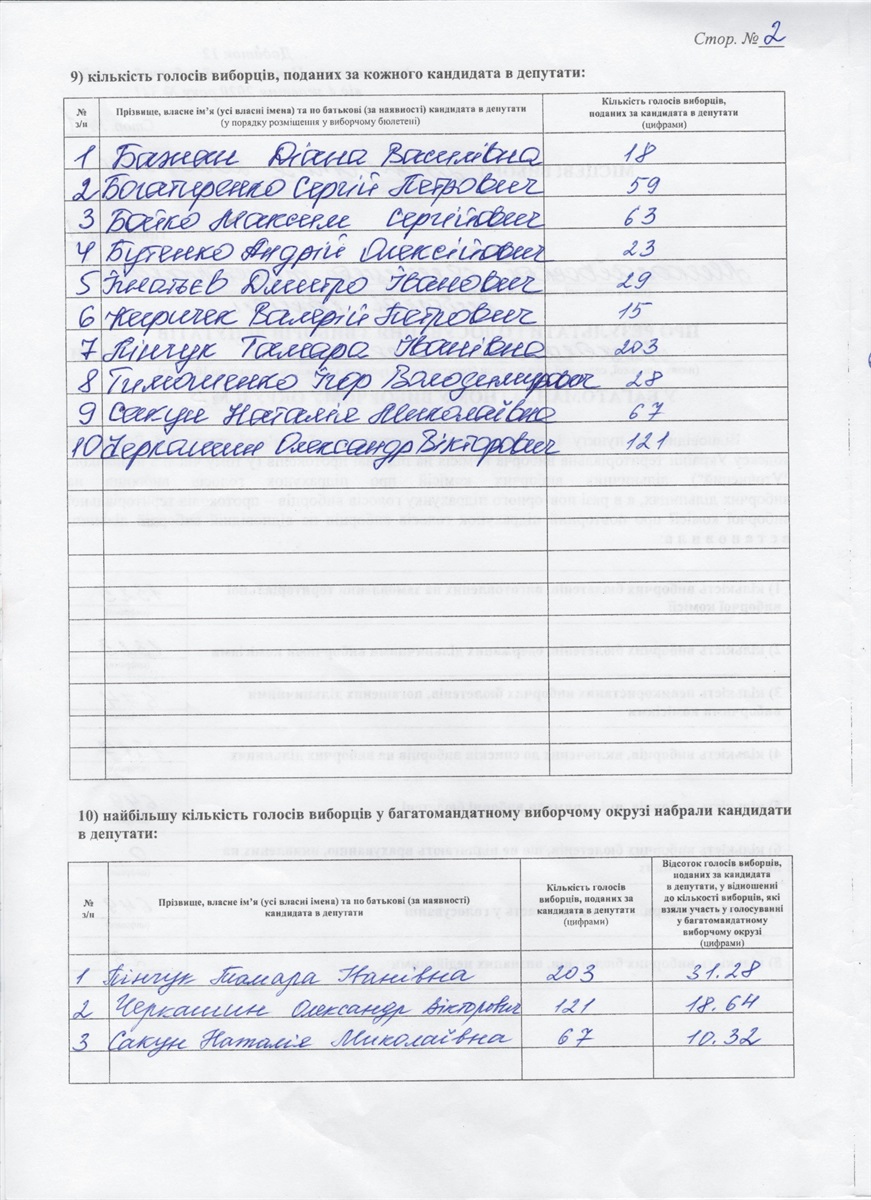 Стор. № 2
9) кількість голосів виборців, поданих за кожного кандидата в депутати:
№ з/п
Прізвище, власне ім’я (усі власні імена) та по батькові (за наявності) кандидата в депутати
(у порядку розміщення у виборчому бюлетені)
Кількість голосів виборців,
поданих за кандидата в депутати
(цифрами)
1 Бажан Діана Василівна 18
2 Богатиренко Сергій Петрович 59
3 Бойко Максим Сергійович 63
4 Бутенко Андрій Олексійович 23
5 Ігнатьєв Дмитро Іванович 29
6 Киричек Валерій Петрович 15
7 Пінчук Тамара Іванівна 203
8 Тимошенко Ігор Володимирович 28
9 Сакун Наталія Миколаївна 67
10 Черкашин Олександр Вікторович 121
10) найбільшу кількість голосів виборців у багатомандатному виборчому окрузі набрали кандидати
в депутати:
№ з/п
Прізвище, власне ім’я (усі власні імена) та по батькові (за наявності)
кандидата в депутати
Кількість голосів
виборців, поданих за
кандидата в депутати
(цифрами)
Відсоток голосів виборців,
поданих за кандидата
в депутати, у відношенні
до кількості виборців, які
взяли участь у голосуванні
у багатомандатному
виборчому окрузі
(цифрами)
1 Пінчук Тамара Іванівна 203 31.28
2 Черкашин Олександр Вікторович 121 18.64
3 Сакун Наталія Миколаївна 67 10.32